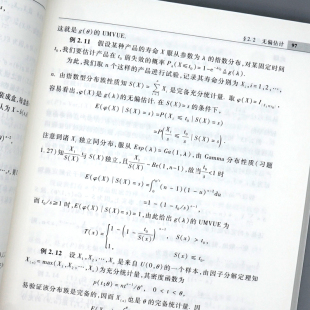 §2.2 无偏估计 97
这就是 g(θ) 的 UMVUE.
例 2.11 假设某种产品的寿命 X 服从参数为 λ 的指数分布,对某固定时间
t₀,我们要估计产品在 t₀ 前失效的概率 P
为此,我们取 n 个这样的产品进行试验,记录其寿命分别为
由指数型分布族性质知 S(X)= 是完备充分统计量. 取 φ(X)=
容易看出,φ(X) 是 g(λ) 的无偏估计. 在 S(X)=s 的条件下,
E(φ(X)|S(X)=s)=P(X₁≤t₀|S(X)=s)
注意到诸 Xᵢ 独立同分布,服从 Exp(λ)=Ga(1,λ),由 Gamma 分布性质(习题
1.27)知 X₁/S(X) 与 S(X) 独立,且 X₁/S(X) ~Be(1,n-1),故当 t₀/s<1 时
E(φ(X)|S(X)=s)= (n-1)(1-u)ⁿ⁻²du
=1-(1-t₀/s)ⁿ⁻¹,
而 t₀/s≥1 时,E(φ(X)|S(X)=s)=1,由此给出 g(λ) 的 UMVUE 为
T(x)= S(x)>t₀,
1, S(x)≤t₀.
例 2.12 设 X₁,X₂,…,Xₙ 是来自 U(0,θ) 的一个样本,由因子分解定理知
=max(X₁,X₂,…,Xₙ) 为充分统计量,其密度函数为
p(t;θ)=ntⁿ⁻¹/θⁿ, 0<t<θ,
易验证该分布族是完备的,因而 也是 θ 的完备统计量. 因